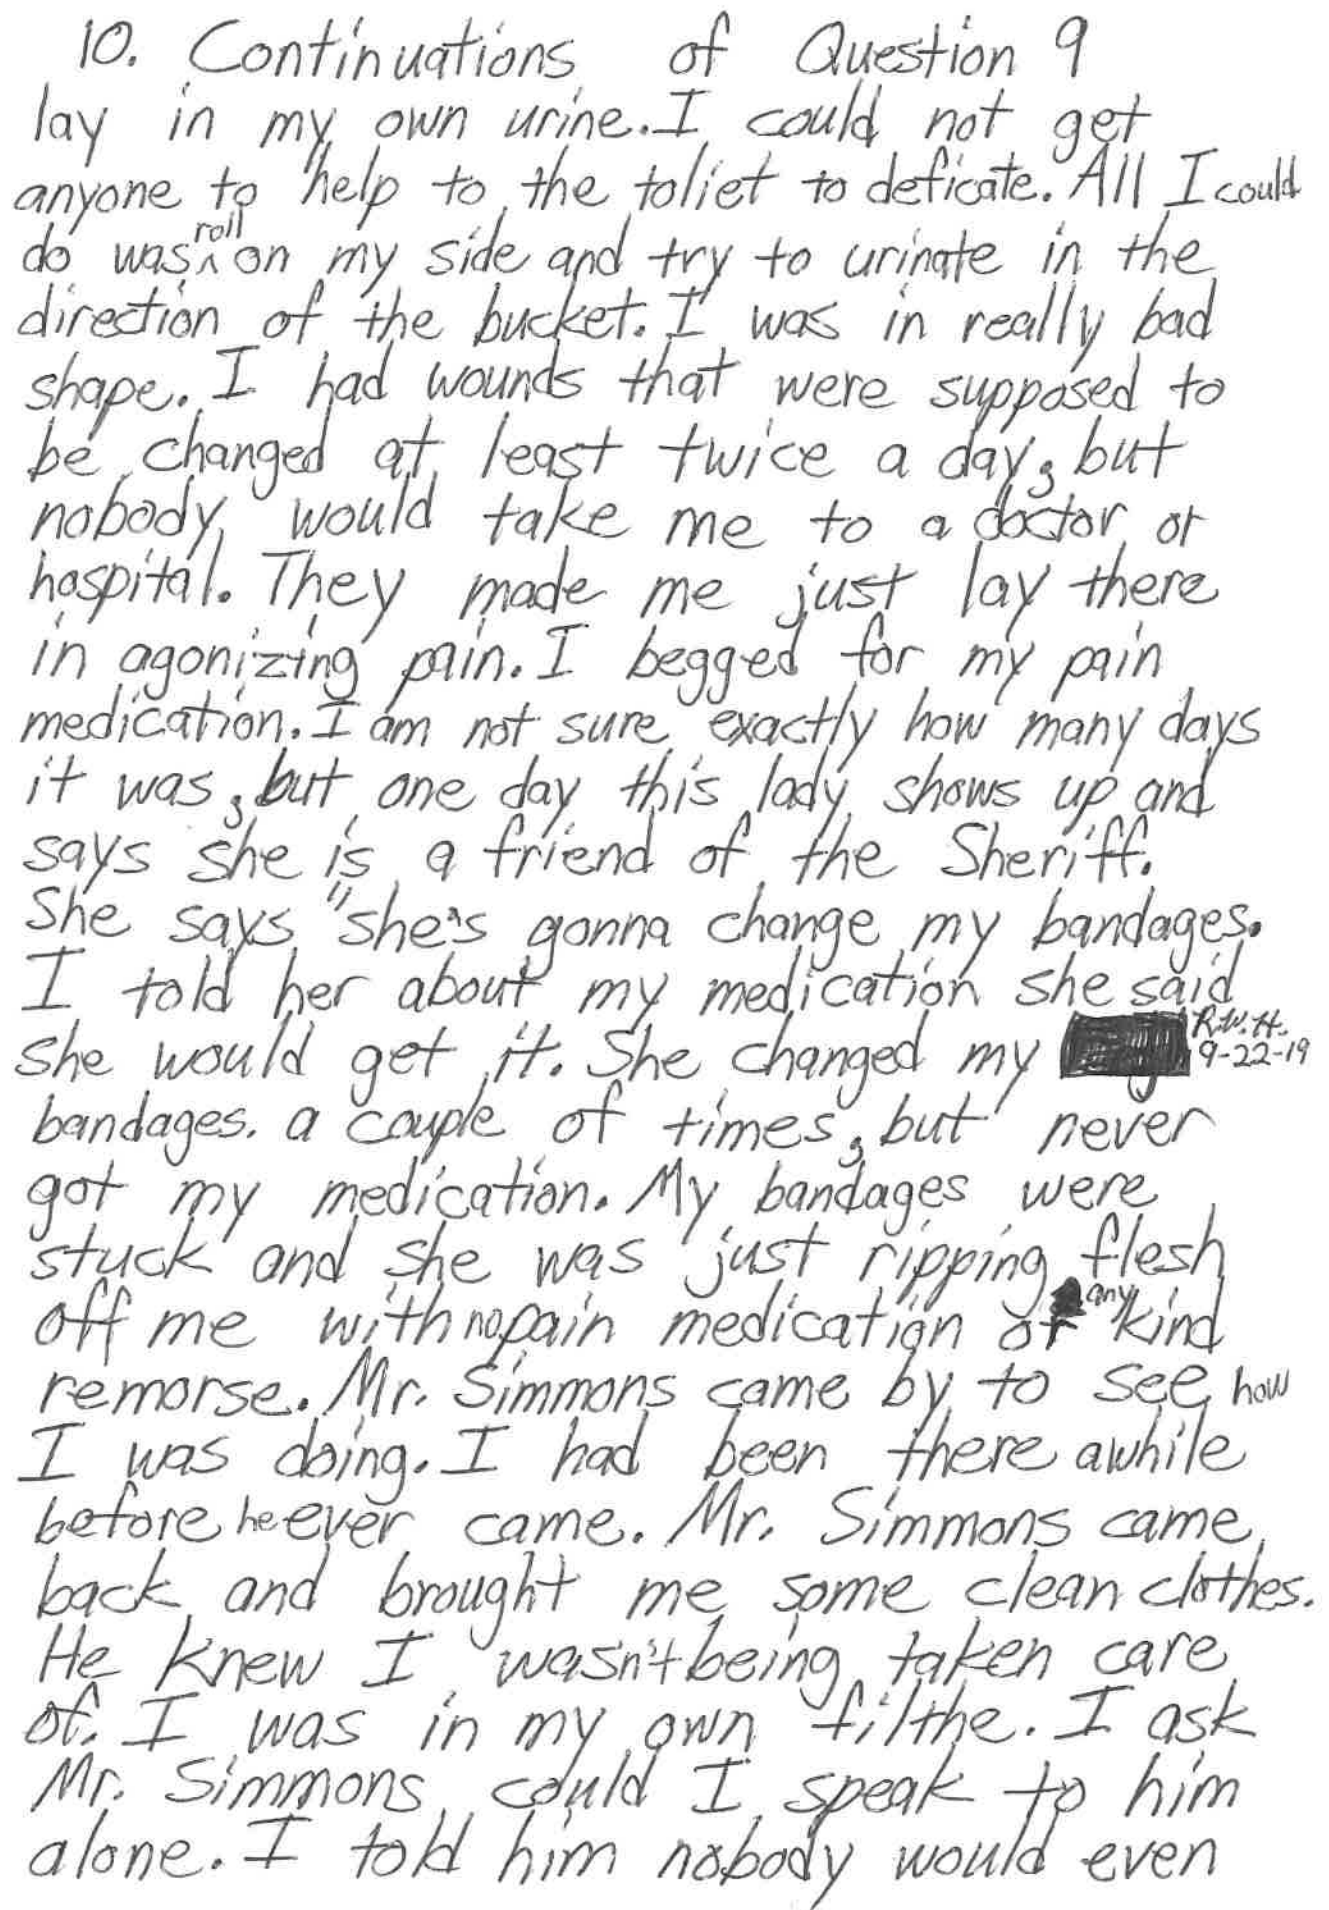 10. Continuations of Question 9
lay in my own urine. I could not get
anyone to help to the toliet to deficate. All I could
do was ^ roll on my side and try to urinate in the
direction of the bucket. I was in really bad
shape. I had wounds that were supposed to
be changed at least twice a day, but
nobody would take me to a doctor or
hospital. They made me just lay there
in agonizing pain. I begged for my pain
medication. I am not sure exactly how many days
it was, but one day this lady shows up and
says she is a friend of the Sheriff.
She says "she's gonna change my bandages.
I told her about my medication she said
she would get it. She changed my R.W.H. 9-22-19
bandages. a couple of times, but never
got my medication. My bandages were
stuck and she was just ripping flesh
off me with no pain medication or any kind
remorse. Mr. Simmons came by to see how
I was doing. I had been there awhile
before he ever came. Mr. Simmons came
back and brought me some clean clothes.
He knew I wasn't being taken care
of. I was in my own filthe. I ask
Mr. Simmons could I speak to him
alone. I told him nobody would even